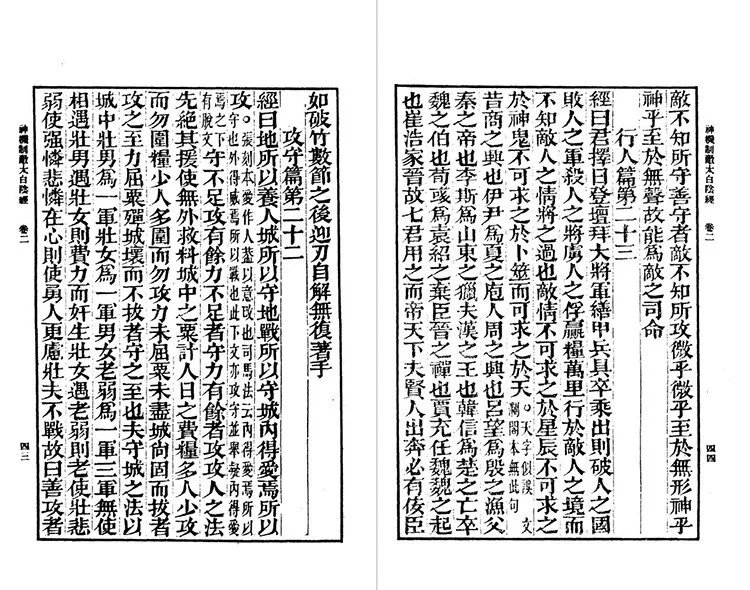 如破竹數節之後迎刃自解無復著手
攻守篇第二十二
經曰地所以養人城所以守地戰所以守城內得愛焉所以
攻。張刻本愛作人蓋以意改也司馬法云內得愛焉所以
守也外得威焉所以戰也此下文亦攻守並舉疑內得愛
焉之下
有脫文
守不足攻有餘力不足者守力有餘者攻攻人之法
先絕其援使無外救料城中之粟計人日之費糧多人少攻
而勿圍糧少人多圍而勿攻力未屈粟未盡城尚固而拔者
攻之至力屈粟殫城壞而不拔者守之至也夫守城之法以
城中壯男爲一軍壯女爲一軍男女老弱爲一軍三軍無使
相遇壯男遇壯女則費力而奸生壯女遇老弱則老使壯悲
弱使强憐悲憐在心則使勇人更慮壯夫不戰故曰善攻者
神機制敵太白陰經 卷二 四三
敵不知所守善守者敵不知所攻微乎微乎至於無形神乎
神乎至於無聲故能爲敵之司命
行人篇第二十三
經曰君擇日登壇拜大將軍繕甲兵具卒乘出則破人之國
敗人之軍殺人之將虜人之俘贏糧萬里行於敵人之境而
不知敵人之情將之過也敵情不可求之於星辰不可求之
於神鬼不可求之於卜筮而可求之於天。天字似誤文
瀾閣本無此句
昔商之興也伊尹爲夏之庖人周之興也呂望爲殷之漁父
秦之帝也李斯爲山東之獵夫漢之王也韓信爲楚之亡卒
魏之伯也荀彧爲袁紹之棄臣晉之禪也賈充任魏魏之起
也崔浩家晉故七君用之而帝天下夫賢人出奔必有佞臣
神機制敵太白陰經 卷二 四四